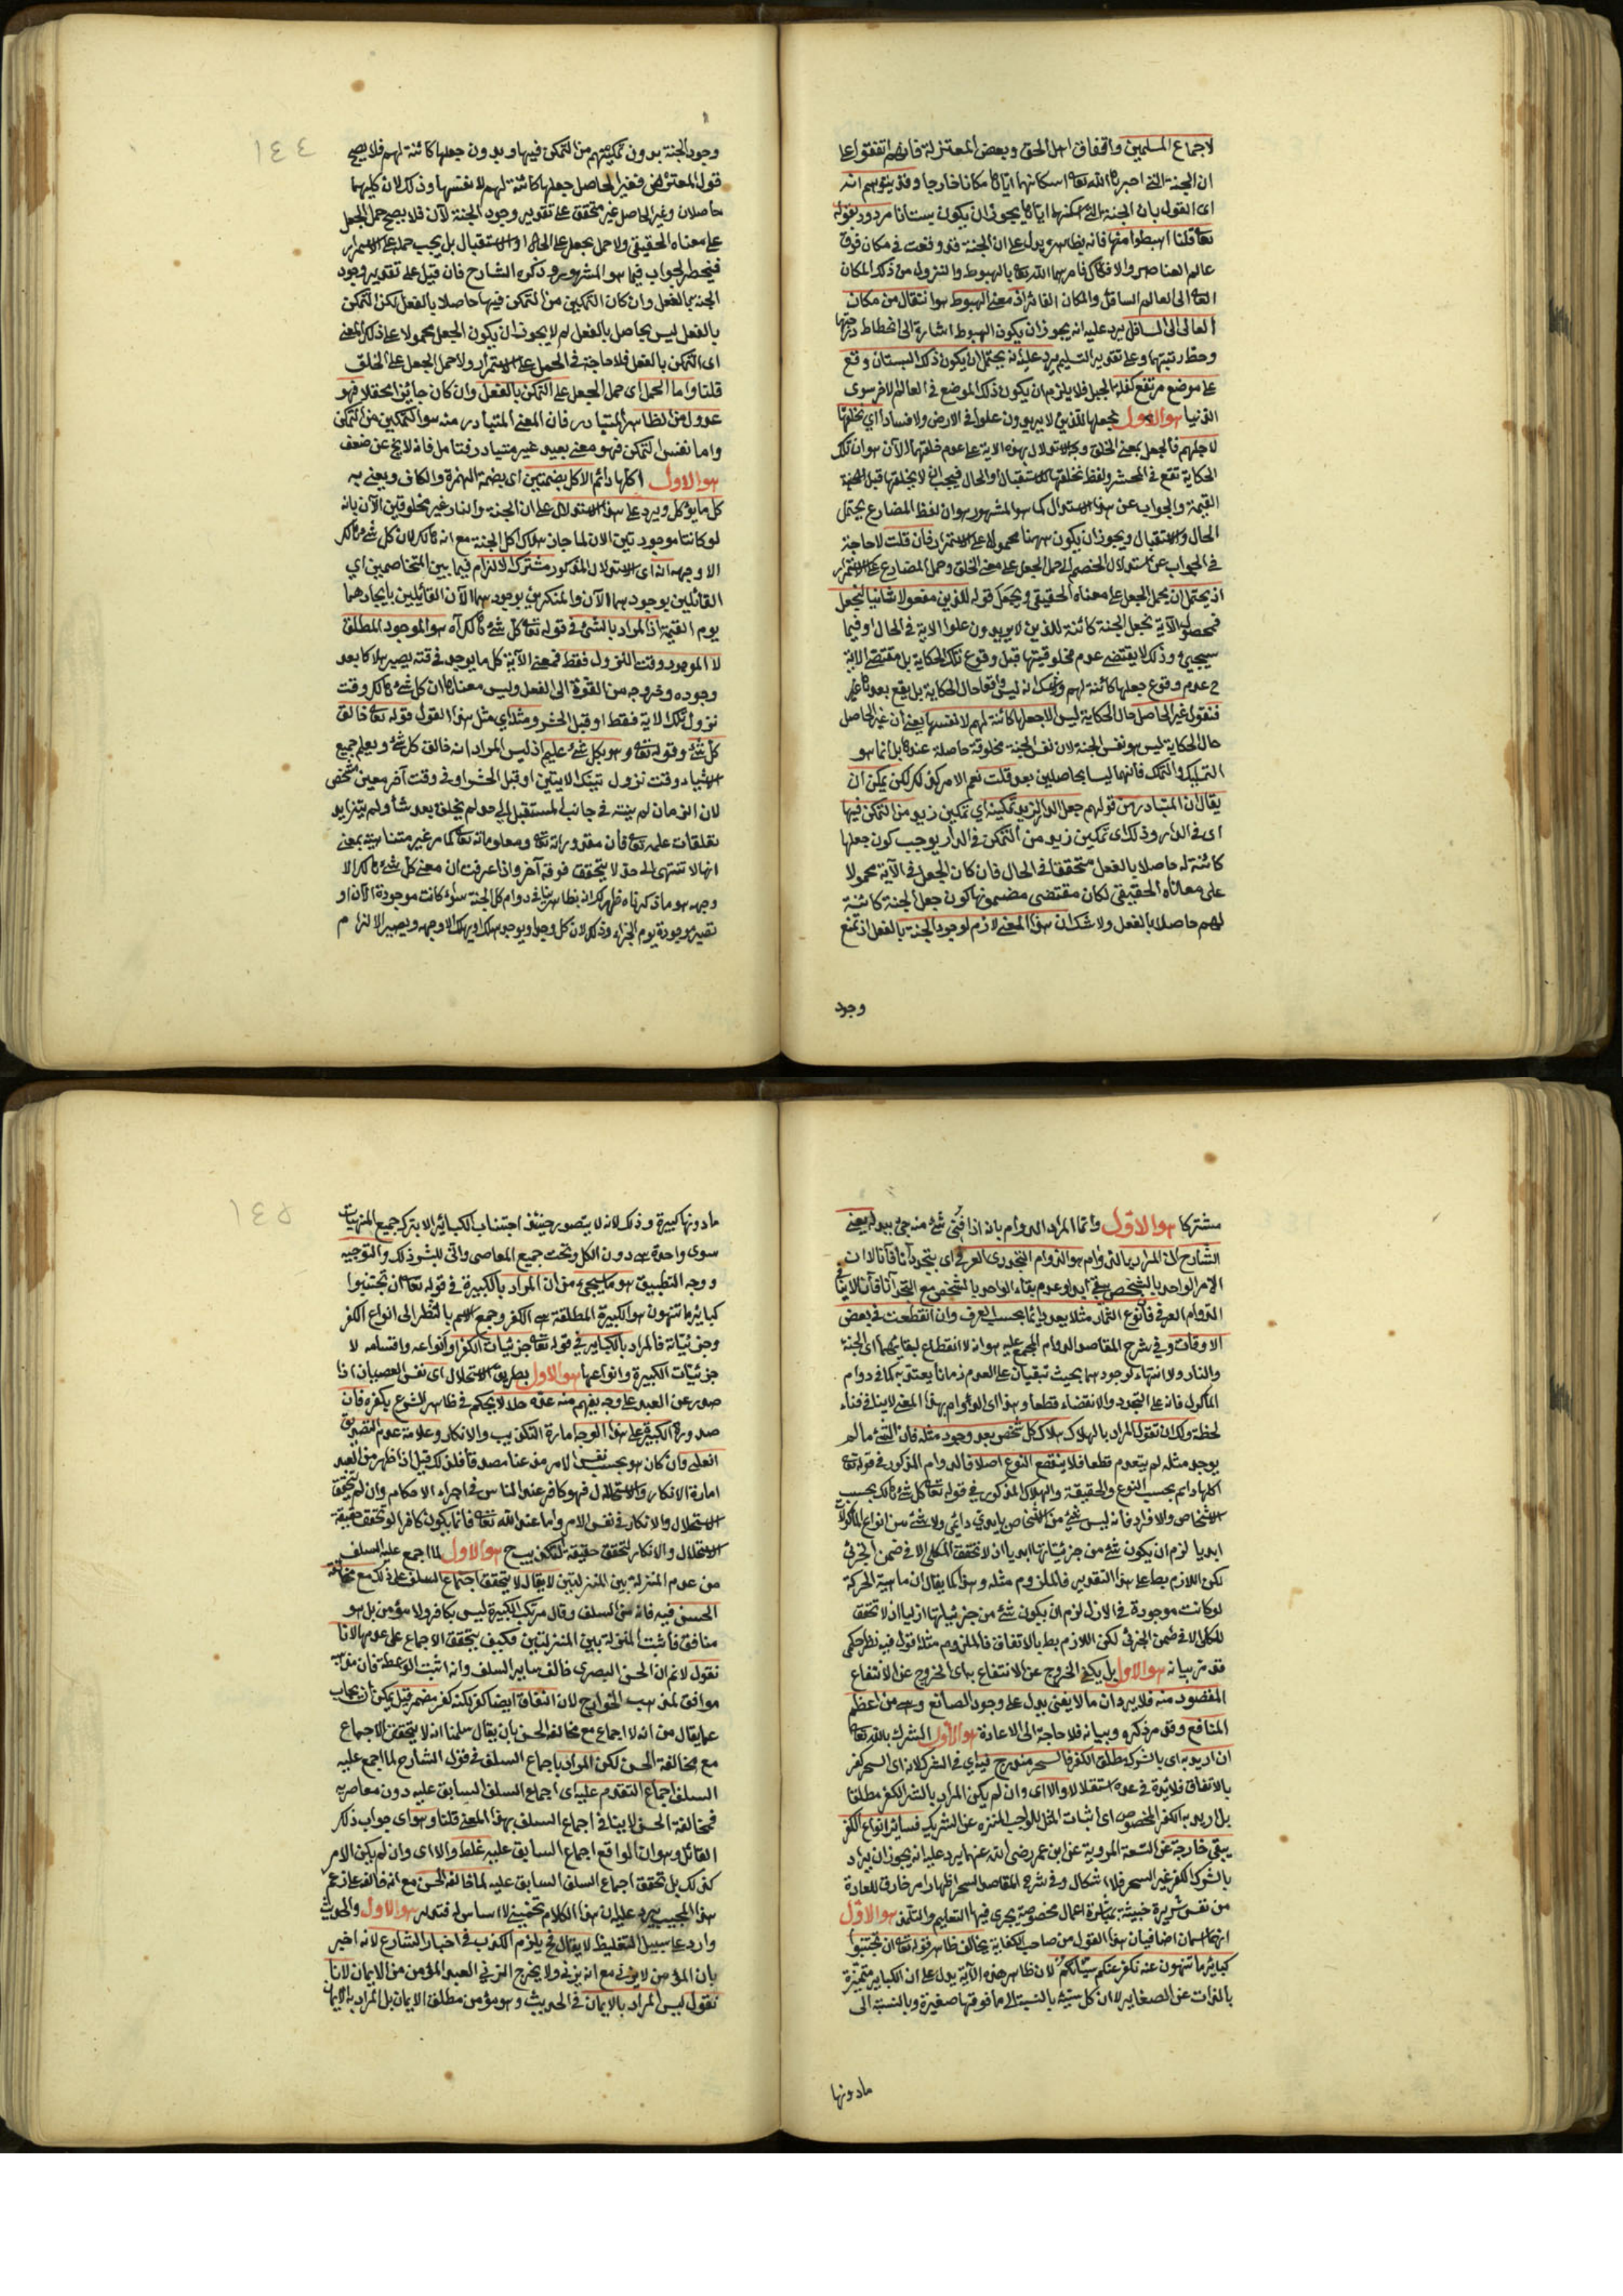 لاجماع المسلمين واتفاق اهل الحق وبعض المعتزلة فانهم اتفقوا على
ان الجنة التي اخبر الله تعا اسكانهما اياها مكانا خارجا وقد يتوهم انه
اى القول بان الجنة التي اسكنهما اياها يجوز ان يكون بستانا مردود بقوله
تعا قلنا اهبطوا منها فانه بظاهره يدل على ان الجنة قد وقعت في مكان فوق
عالم العناصر والافلاك فامرهما الله تعا بالهبوط والنزول من ذلك المكان
العالي الى العالم السافل والمكان اذ معنى الهبوط هو انتقال من مكان
العالى الى السافل يرد عليه انه يجوز ان يكون الهبوط اشارة الى انحطاط درجتهما
وحط رتبتهما وعلى تقدير التسليم يرد عليه انه يحتمل ان يكون ذلك البستان وقع
على موضع مرتفع كقلة الجبل فلا يلزم ان يكون ذلك الموضع في العالم الاخر سوى
الدنيا هو الاول نجعلها للذين لا يريدون علوا في الارض ولا فسادا اي نخلقها
لاجلهم فالجعل بمعنى الخلق وجه الاستدلال بهذه الاية على عدم خلقتها الآن هو ان تلك
الحكاية تقع في المحشر ولفظ نخلقها للاستقبال او الحال فيجب ان لا يخلقها قبل
القيمة والجواب عن هذا الاستدلال كما هو المشهور هو ان لفظ المضارع يحتمل
الحال والاستقبال ويجوز ان يكون ههنا محمولا على الاستمرار فان قلت لا حاجة
في الجواب عن استدلال الخصم الى حمل الجعل على معنى الخلق وحمل المضارع على الاستمرار
اذ يحتمل ان يحمل الجعل على معناه الحقيقى ويجعل قوله للذين مفعولا ثانيا لنجعل
فمحصول الآية نجعل الجنة كائنة للذين لا يريدون علوا الاية في الحال او فيما
سيجئ وذلك لا يقتضى عدم مخلوقيتها قبل وقوع تلك الحكاية بل مقتضى الاية
ح عدم وقوع جعلها كائنة لهم ليس واقعا حال الحكاية بل يقع بعدها
فنقول غير الحاصل حال الحكاية ليس الا جعلها كائنة لهم لا نفسها يعنى ان غير الحاصل
حال الحكاية ليس هو نفس الجنة لان نفس الجنة مخلوقة حاصلة عندها بل انما هو
التمليك والتمكن فانهما ليسا بحاصلين بعد قلت نعم الامر كذلك لكن يمكن ان
يقال ان المتبادر من قولهم جعل الدار لزيد تمكينه اي تمكين زيد من التمكن فيها
اى في الدار وذلك اى تمكين زيد من التمكن في الدار يوجب كون جعلها
كائنة له حاصلا بالفعل متحققا في الحال فان كان الجعل في الآية محمولا
على معناه الحقيقى لكان مقتضى مضمونها كون جعل الجنة كائنة
لهم حاصلا بالفعل ولا شك ان هذا المعنى لازم لوجود الجنة بالفعل اذ تمنع
وجود
١٤٤
وجود الجنة بدون تمكينهم من التمكن فيها وبدون جعلها كائنة لهم فلا يصح
قول المعترض فغير الحاصل جعلها كائنة لهم لا نفسها وذلك لان كليهما
حاصلان وغير الحاصل غير متحقق على تقدير وجود الجنة لآن فلا يصح حمل الجعل
على معناه الحقيقي ولا حمل يجعل على الحال او الاستقبال بل يجب حمله على الاستمرار
فينحصر الجواب فيما هو المشهور وذكره الشارح فان قيل على تقدير وجود
الجنة بالفعل وان كان التمكين من التمكن فيها حاصلا بالفعل لكن التمكن
بالفعل ليس بحاصل بالفعل لم لا يجوز ان يكون الجعل محمولا على ذلك المعنى
اى التمكن بالفعل فلا حاجة في الحمل على الاستمرار ولا حمل الجعل على الخلق
قلنا واما الحمل اى حمل الجعل على التمكن بالفعل وان كان جائزا عقلا فهو
عدول من الظاهر المتبادر فان المعنى المتبادر منه هو التمكين من التمكن
واما نفس التمكن فهو معنى بعيد غير متبادر فتامل فانه لا يخ عن ضعف
هو الاول اكلها دائم الاكل بضمتين اى بضمة الهمزة والكاف ويعنى به
كل ما يؤكل ويرد على هذا الاستدلال على ان الجنة والنار غير مخلوقين الآن بانه
لو كانتا موجودتين الان لما جاز هلاك اكل الجنة مع انه هالك لان كل شئ هالك
الا وجهه انه اى الاستدلال المذكور مشترك الالزام فيما بين المتخاصمين اي
القائلين بوجودهما الآن والمنكرين بوجودهما الآن القائلين بايجادهما
يوم القيمة اذ المراد بالشئ في قوله تعا كل شئ هالك آه هو الموجود المطلق
لا الموجود وقت النزول فقط فمعنى الآية كل ما يوجد في وقته يصير هالكا بعد
وجوده وخروجه من القوة الى الفعل وليس معناه ان كل شئ هالك وقت
نزول تلك الاية فقط او قبل الحشر ومثله اي مثل هذا القول قوله تعا خالق
كل شئ وقوله تعا وهو بكل شئ عليم اذ ليس المراد انه خالق كل شئ ويعلم جميع
الاشياء وقت نزول تينك الايتين او قبل الحشر او في وقت آخر معين مشخص
لان الزمان لم ينته في جانب المستقبل الى حد لم يخلق بعده شأ ولم يتزايد
تعلقات علمه تعا فان مقدوراته تعا ومعلوماته تعا كما مر غير متناهية بمعنى
انها لا تنتهى الى حد لا يتحقق فوقه آخر واذا عرفت ان معنى كل شئ هالك الا
وجهه هو ما ذكرناه ظهر لك انه بظاهره ينافي دوام اكل الجنة سواء كانت موجودة الآن او
تصير موجودة يوم الجزاء وذلك لان كل وجد او يوجد هلك او يهلك الا وجهه ويصير الالزام
مشتركا هو الاول وانما المراد الدوام بانه اذا فنى شئ منه جئ ببدله يعنى
الشارح ان المراد بالدوام هو الدوام التجددى العرفي اى يتجدد آنا فآنا لا ان
الامر الواحد بالشخص يبقى ابدا وعدم بقاء الواحد بالشخص مع التجدد آنا فآنا لا ينافي
الدوام العرفي فان نوع الثمار مثلا يعد دائما بحسب العرف وان انقطعت في بعض
الاوقات وفي شرح المقاصد الدوام المجمع عليه هو انه لا انقطاع لبقائهما اى الجنة
والنار ولا انتهاء لوجودهما بحيث تبقيان على العدم زمانا يعتد به كما في دوام
المأكول فانه على التجدد والانقضاء قطعا وهذا اى الدوام بهذا المعنى لا ينافي فناء
لحظة ولك ان تقول المراد بالهلاك هلاك كل شخص بعد وجود مثله فان الشئ ما لم
يوجد مثله لم ينعدم قطعا فلا ينقطع النوع اصلا فالدوام المذكور في قوله تعا
اكلها دائم بحسب النوع والحقيقة والهلاك المذكور في قوله تعا كل شئ هالك بحسب
الاشخاص والافراد فانه ليس شئ من الاشخاص بابدي دائمى ولا شئ من انواع المأكولات
ابديا لزم ان يكون شئ من جزئياتها ابديا اذ لا تحقق للكلى الا في ضمن الجزئى
لكن اللازم بط على هذا التقدير فالملزوم مثله وهذا كما يقال ان ماهية الحركة
لو كانت موجودة في الازل لزم ان يكون شئ من جزئياتها ازليا اذ لا تحقق
للكلى الا في ضمن الجزئى لكن اللازم بط بالاتفاق فالملزوم مثله اقول فيه نظر حكمى
قد مر بيانه هو الاول بل يكفى الخروج عن الانتفاع به اى الخروج عن الانتفاع
المقصود منه فلا يرد ان ما لا يفنى يدل على وجود الصانع وهى من اعظم
المنافع وقد مر ذكره وبيانه فلا حاجة الى الاعادة هو الاول الشرك بالله تعا
ان اريد به اى بالشرك مطلق الكفر فالسحر مندرج فيه اي في الشرك لانه اى السحر كفر
بالاتفاق فلا فائدة في عده استقلالا والا اى وان لم يكن المراد بالشرك الكفر مطلقا
بل اريد به الكفر المخصوص اى اثبات المثل للواجب المنزه عن الشريك فسائر انواع الكفر
يبقى خارجة عن التسعة المروية عن ابن عمر رضى الله عنهما يرد عليه انه يجوز ان يراد
بالشرك الكفر غير السحر فلا اشكال وفي شرح المقاصد السحر اظهار امر خارق للعادة
من نفس شريرة خبيثة بمباشرة اعمال مخصوصة يجرى فيها التعليم والتلمذ هو الاول
انهما اسمان اضافيان هذا القول من صاحب الكفاية يخالف ظاهر قوله تعا ان تجتنبوا
كبائر ما تنهون عنه نكفر عنكم سيئاتكم لان ظاهر هذه الآية يدل على ان الكبائر متميزة
بالذات عن الصغاير لا ان كل سيئة بالنسبة الى ما فوقها صغيرة وبالنسبة الى
مادونها
١٤٥
مادونها كبيرة وذلك لانه لا يتصور حينئذ اجتناب الكبائر الا بترك جميع المنهيات
سوى واحدة هى دون الكل وتحت جميع المعاصى وانى للبشر ذلك والتوجيه
ووجه التطبيق هو ما سيجئ من ان المراد بالكبيرة في قوله تعا ان تجتنبوا
كبائر ما تنهون هو الكبيرة المطلقة هى الكفر وجمع الاسم بالنظر الى انواع الكفر
وجزئياته فالمراد بالكبائر في قوله تعا جزئيات الكفر وانواعه واقسامه لا
جزئيات الكبيرة وانواعها هو الاول بطريق الاستحلال اى نفس العصيان اذا
صدر عن العبد على وجه يفهم منه عده حلالا يحكم في ظاهر الشرع بكفره فان
صدور الكبيرة على هذا الوجه امارة التكذيب والانكار وعلامة عدم التصديق
القلبى وان كان هو بحسب نفس الامر مذعنا مصدقا فلذلك قيل اذا ظهر من العبد
امارة الانكار والاستحلال فهو كافر عند الناس في اجراء الاحكام وان لم يتحقق
الاستحلال والانكار في نفس الامر واما عند الله تعا فانما يكون كافرا لو تحقق حقيقة
الاستحلال والانكار لتحقق حقيقة التكذيب ح هو الاول لما اجمع عليه السلف
من عدم المنزلة بين المنزلتين لا يقال لا يتحقق اجماع السلف على ذلك مع مخالفة
الحسن فيه فانه من السلف وقال مرتكب الكبيرة ليس بكافر ولا مؤمن بل هو
منافق فاثبت المنزلة بين المنزلتين فكيف يتحقق الاجماع على عدمها لانا
نقول لا نم ان الحسن البصرى خالف ساير السلف وانه اثبت الواسطة فان مذهبه
موافق لمذهب الخوارج لان النفاق ايضا كفر لكنه كفر مضمر قيل يمكن ان يجاب
عما يقال من انه لا اجماع مع مخالفة الحسن بان يقال سلمنا انه لا يتحقق الاجماع
مع مخالفة الحسن لكن المراد باجماع السلف في قول الشارح لما اجمع عليه
السلف اجماع المتقدم عليه اى اجماع السلف السابق عليه دون معاصريه
فمخالفة الحسن لا ينافي اجماع السلف بهذا المعنى قلنا وهو اى جواب ذلك
القائل وهو ان الواقع اجماع السابق عليه غلط والا اى وان لم يكن الامر
كذلك بل تحقق اجماع السلف السابق عليه لما خالفه الحسن مع انه خالفه على زعم
هذا المجيب يرد عليه ان هذا الكلام تخمينى لا اساس له فتدبر هو الاول والحديث
وارد على سبيل التغليظ لا يقال فح يلزم الكذب في اخبار الشارع لانه اخبر
بان المؤمن لا يزنى مع انه يزنى ولا يخرج الزنى العبد المؤمن من الايمان لانا
نقول ليس المراد بالايمان في الحديث وهو مؤمن مطلق الايمان بل المراد به الايمان